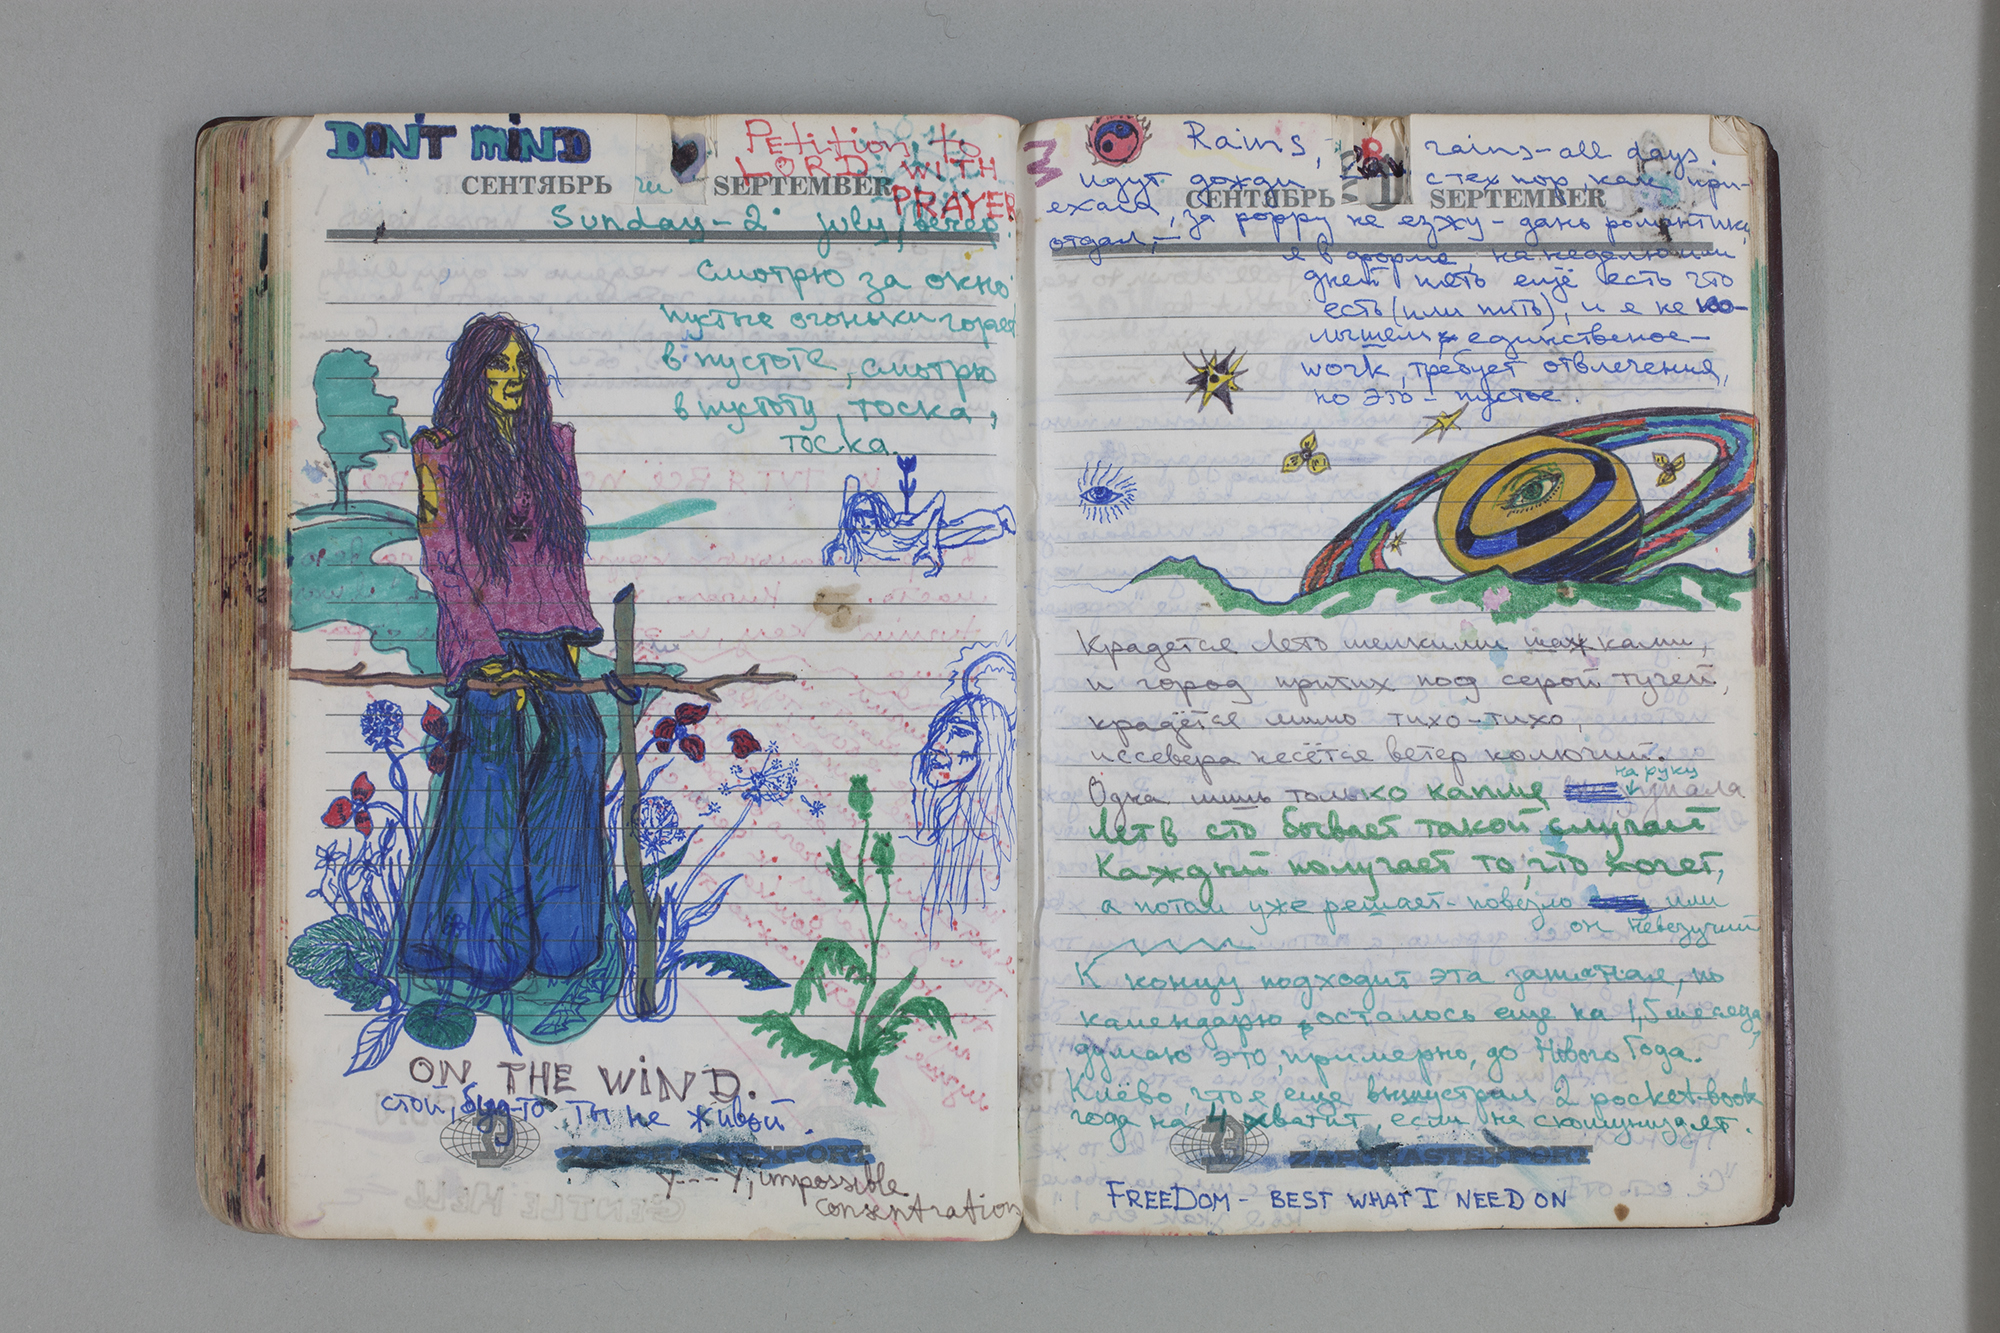 DON'T MIND
Petition to
LORD WITH
PRAYER
СЕНТЯБРЬ SEPTEMBER
Sunday - 2 july, вечер.
смотрю за окно
пустые огоньки горят
в пустоте, смотрю
в пустоту, тоска,
тоска.
ON THE WIND.
стой, будто ты не живой.
ZAPCHASTEXPORT
Y---Y, impossible
consentration
Rains, rains - all days.
идут дожди с тех пор, как при-
СЕНТЯБРЬ SEPTEMBER
ехала, за город не езжу - дань романтике
отдал, -
я в форме, на неделю или
дней пять ещё есть что
есть (или пить), и я не ко-
лышем единственое -
work, требует отвлечения,
но это - пустое.
Крадется лето мелкими шажками,
и город притих под серой тучей,
крадётся мимо тихо-тихо,
иссевера несётся ветер колючий.
на руку
Одна лишь только капля упала
Лет в сто бывает такой случай
Каждый получает то, что хочет,
а потом уже решает - повезло или
он невезучий
К концу подходит эта записная, но
календарю осталось еще на 1,5 месяца,
думаю это, примерно, до Нового Года.
Клёво, что я еще выцыганил 2 pocket-book
года на 4 хватит, если не
ZAPCHASTEXPORT
FREEDOM - BEST WHAT I NEED ON